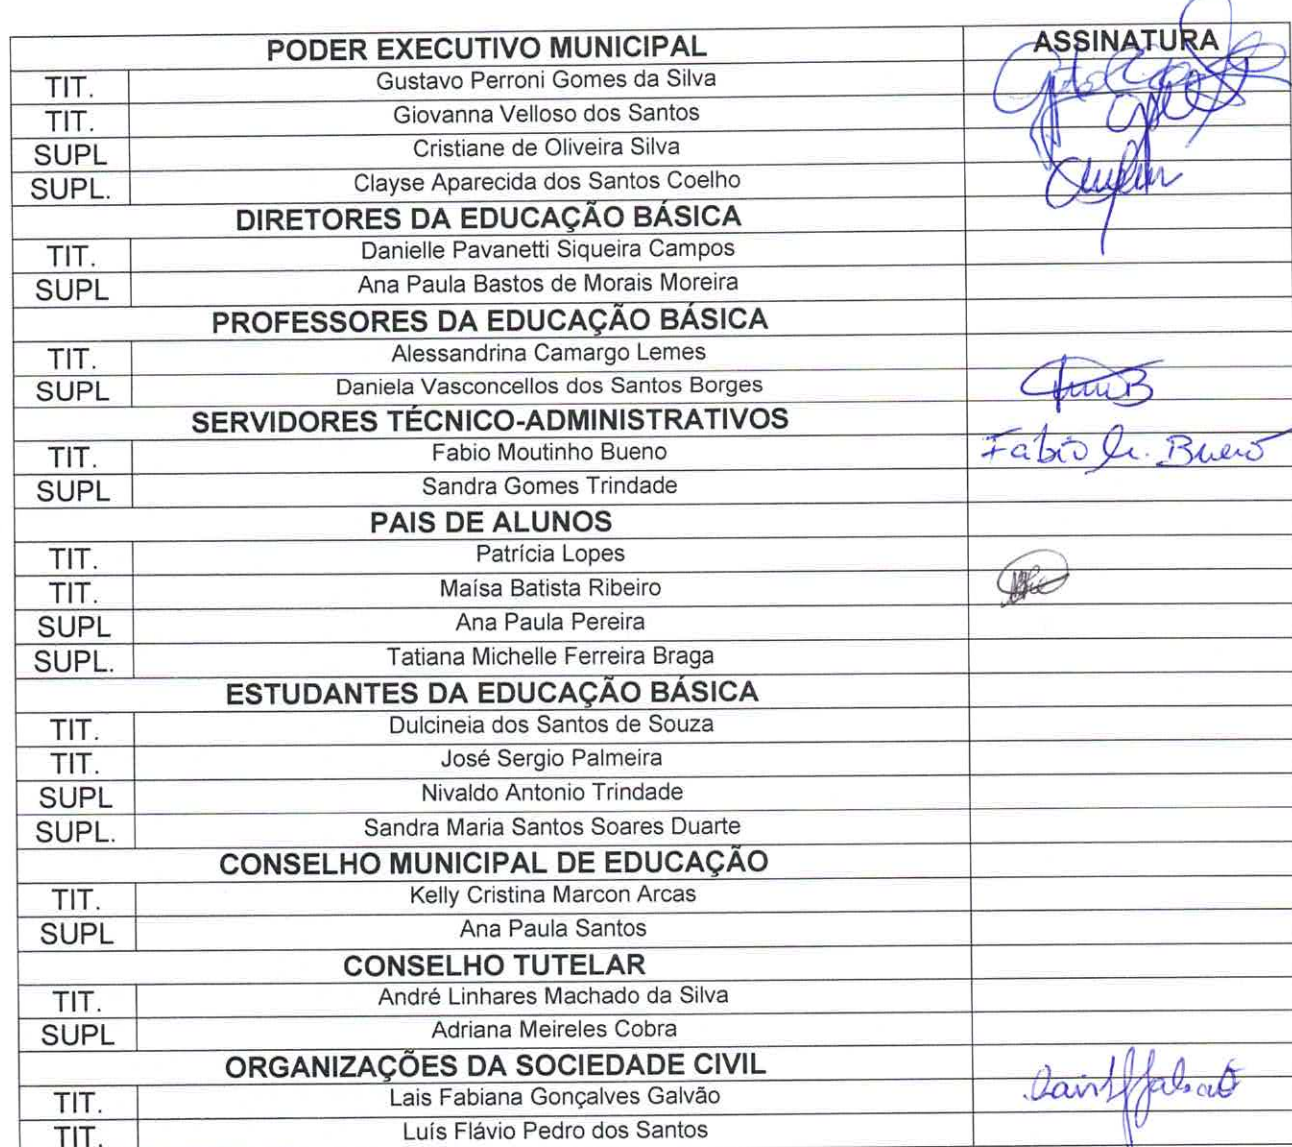 PODER EXECUTIVO MUNICIPAL ASSINATURA
TIT. Gustavo Perroni Gomes da Silva
TIT. Giovanna Velloso dos Santos
SUPL Cristiane de Oliveira Silva
SUPL. Clayse Aparecida dos Santos Coelho
DIRETORES DA EDUCAÇÃO BÁSICA
TIT. Danielle Pavanetti Siqueira Campos
SUPL Ana Paula Bastos de Morais Moreira
PROFESSORES DA EDUCAÇÃO BÁSICA
TIT. Alessandrina Camargo Lemes
SUPL Daniela Vasconcellos dos Santos Borges
SERVIDORES TÉCNICO-ADMINISTRATIVOS
TIT. Fabio Moutinho Bueno Fabio M. Bueno
SUPL Sandra Gomes Trindade
PAIS DE ALUNOS
TIT. Patrícia Lopes
TIT. Maísa Batista Ribeiro
SUPL Ana Paula Pereira
SUPL. Tatiana Michelle Ferreira Braga
ESTUDANTES DA EDUCAÇÃO BÁSICA
TIT. Dulcineia dos Santos de Souza
TIT. José Sergio Palmeira
SUPL Nivaldo Antonio Trindade
SUPL. Sandra Maria Santos Soares Duarte
CONSELHO MUNICIPAL DE EDUCAÇÃO
TIT. Kelly Cristina Marcon Arcas
SUPL Ana Paula Santos
CONSELHO TUTELAR
TIT. André Linhares Machado da Silva
SUPL Adriana Meireles Cobra
ORGANIZAÇÕES DA SOCIEDADE CIVIL
TIT. Lais Fabiana Gonçalves Galvão
TIT. Luís Flávio Pedro dos Santos